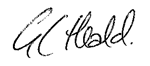 GC Heald.